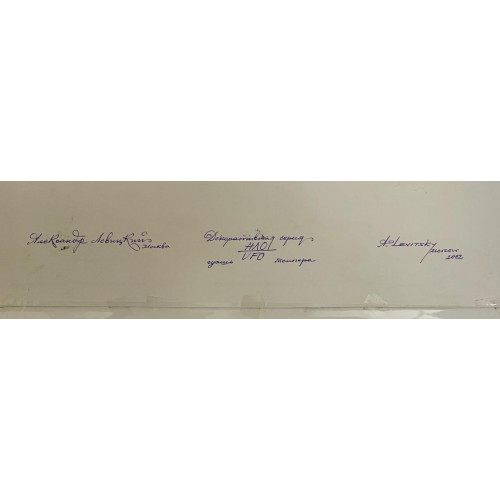 Александр Левицкий
Москва
Декоративная серия
НЛО!
гуашь UFO темпера
A. Levitsky